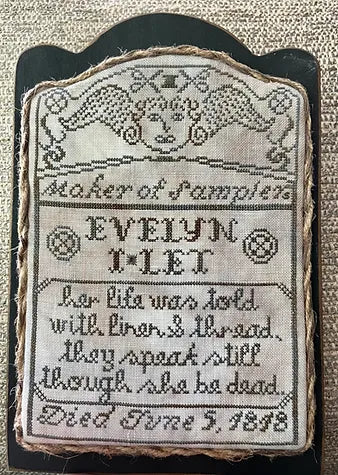 Maker of Samplers
EVELYN
I * LET
her life was told
with linen & thread,
they speak still
though she be dead
Died June 5, 1818